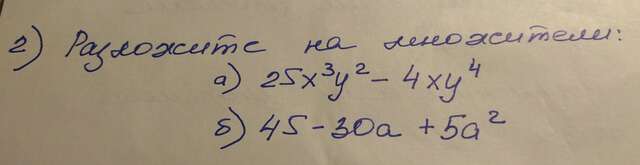 2) Разложите на множители:
а) 25x³y² - 4xy⁴
б) 45 - 30a + 5a²